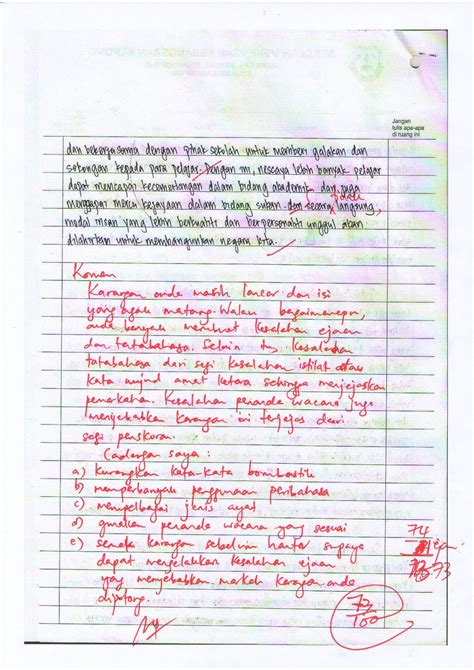 Jangan
tulis apa-apa
di ruang ini
dan bekerjasama dengan pihak sekolah untuk memberi galakan dan
sokongan kepada para pelajar. Dengan ini, nescaya lebih banyak pelajar
dapat mencapai kecemerlangan dalam bidang akademik dan juga
menggapai mercu kejayaan dalam bidang sukan. dan secara langsung,
modal insan yang lebih berkualiti dan berpersonaliti unggul akan
dilahirkan untuk membangunkan negara kita.
Komen
Karangan anda masih lancar dan isi
yang agak matang. Walau bagaimanapun,
anda banyak membuat kesalahan ejaan
dan tatabahasa. Selain itu, kesalahan
tatabahasa dari segi kesalahan istilah atau
kata wujud amat ketara sehingga menjejaskan
pemarkahan. Kesalahan penanda wacana juga
menyebabkan karangan ini terjejas dari
segi penskoran.
Cadangan saya:
a) Kurangkan kata-kata bombastik
b) memperbanyak penggunaan peribahasa
c) mempelbagai jenis ayat
d) gunakan penanda wacana yang sesuai
74
e) semak karangan sebelum hantar supaya
dapat mengelakkan kesalahan ejaan
73
yang menyebabkan markah karangan anda
dipotong.
73
100